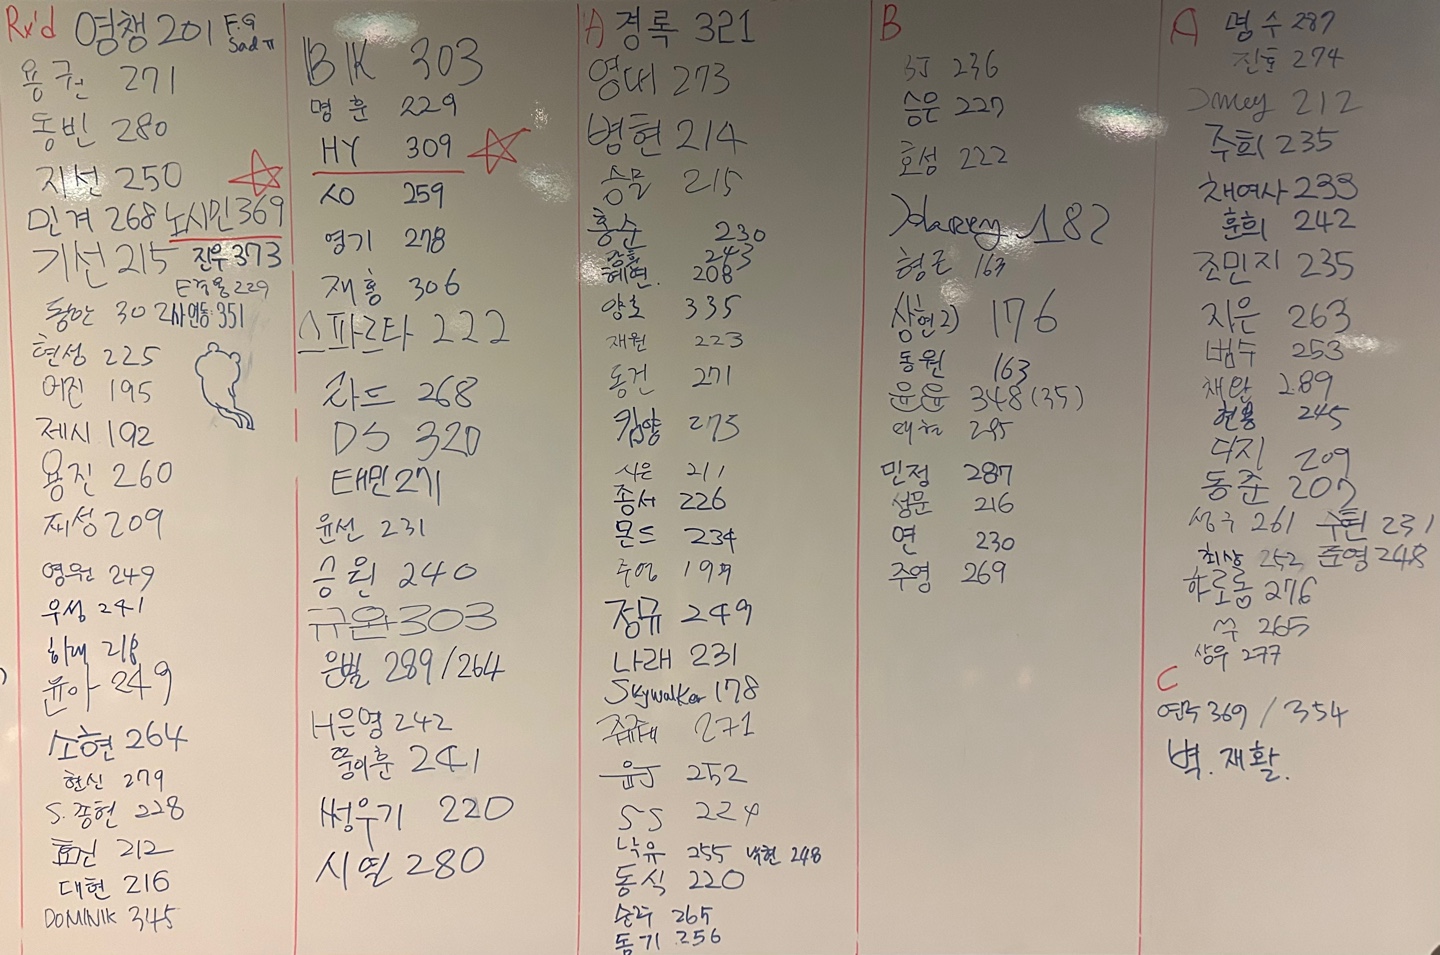 Rx'd 영챙 201 F.G Sad ㅠ
용권 271
동빈 280
지선 250
민겨 268 노시민 369
기선 215 진우 373
229
동안 302 사연동 351
현성 225
어진 195
제시 192
용진 260
찌성 209
영원 249
우성 241
하래 218
윤아 249
소현 264
현신 279
S.종현 228
효진 212
대현 216
DOMINIK 345
BK 303
명훈 229
HY 309
SO 259
영기 278
재홍 306
스파르타 222
라드 268
DS 320
태민 271
윤선 231
승원 240
규완 303
은별 289/264
H은영 242
쭝이훈 241
썽우기 220
시열 280
A) 경록 321
영대 273
병현 214
승물 215
홍순 230
강훈 243
혜연. 208
양호 335
재원 223
동건 271
킴양 275
시은 211
종서 226
몬드 234
주영 199
정규 249
나래 231
Skywalker 178
271
윤J 252
SS 224
낙유 255 낙현 248
동식 220
승주 265
동기 256
B
SJ 236
승은 227
호성 222
Harey 182
형근 163
상현2) 176
동원 163
윤윤 348(35)
대현 295
민정 287
성문 216
연 230
주영 269
A 명수 287
진호 274
Jmey 212
주희 235
채여사 233
훈희 242
조민지 235
지은 263
범수 253
채완 289
현용 245
디지 209
동준 207
성수 261 수현 231
최상 252 준영 248
하로롱 276
ㅆ수 265
상우 277
C
연주 369 / 354
벽. 재활.